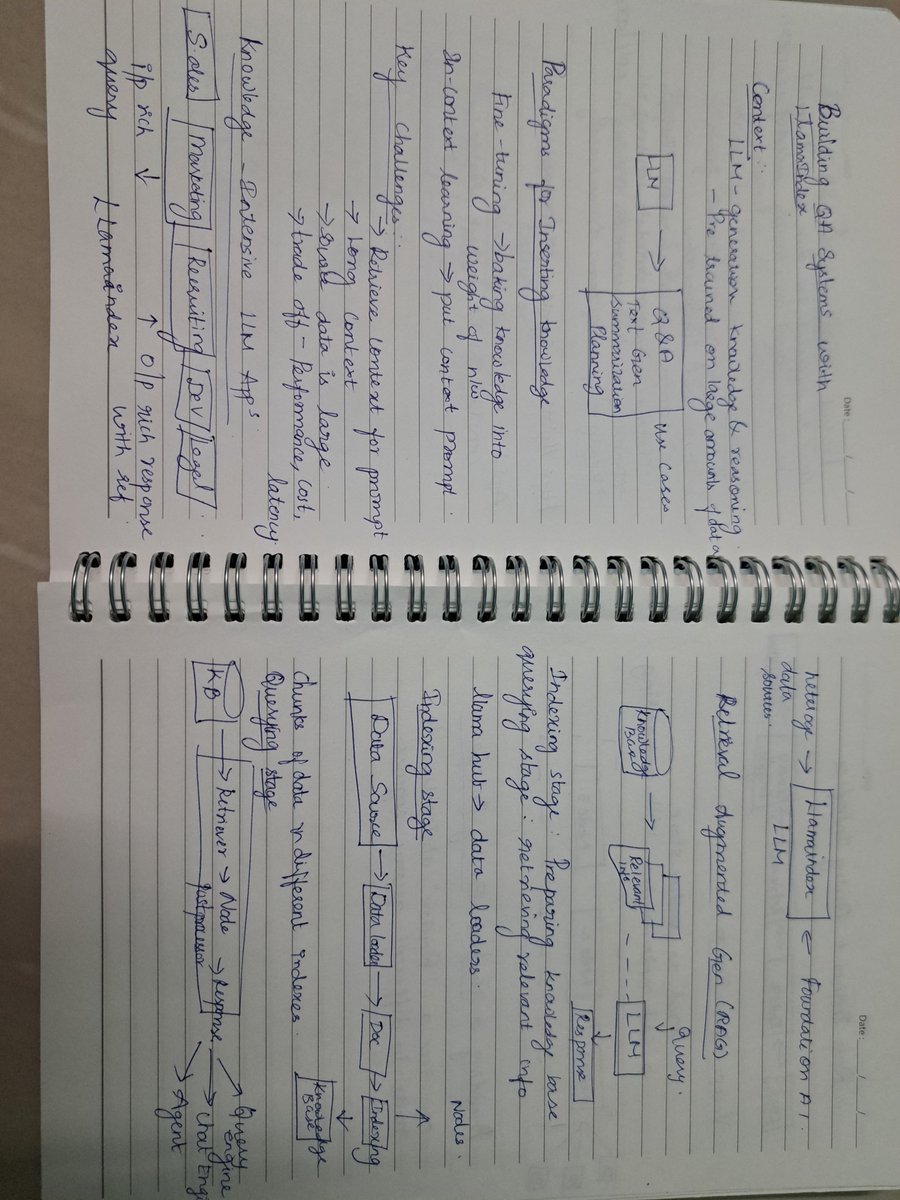 Date:
Building QA Systems with
LlamaIndex
Context :
LLM - generation knowledge & reasoning
- Pre trained on large amounts of data
LLM → Q&A Use Cases
Text Gen
Summarization
Planning
Paradigms for Inserting knowledge
Fine-tuning → baking knowledge into
weight of n/w
In-context learning → put context prompt.
Key Challenges :
→ Retrieve context for prompt
→ Long context
→ source data is large
→ trade off - Performance, cost,
latency
Knowledge - Intensive LLM Apps
Sales Marketing Recruiting Dev Legal
i/p rich ↓ ↑ o/p rich response
query LlamaIndex with ref
Date:
heteroge → Llamaindex ← Foundation AI
data LLM
sources
Retrieval Augmended Gen (RAG)
Knowledge → Relevant - - - LLM Query
Base info
Response
Indexing stage : Preparing knowledge base
querying stage : retrieving relevant info
llama hub → data loaders.
Nodes.
Indexing stage
Data Source → Data loader → Doc → Indexing
Knowledge
Base
Chunks of data in different indexes.
Querying stage
KB → Retriever → Node → Response
Postprocessor
Query
engine
Chat Engi
Agent